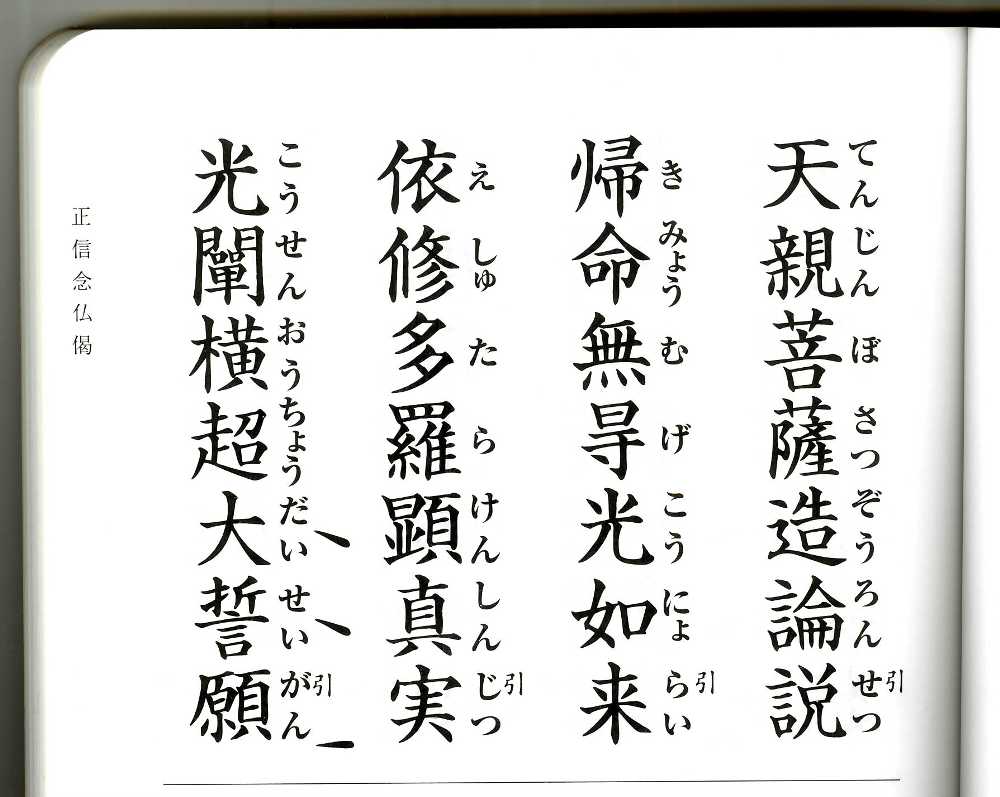 天親菩薩造論説
てんじんぼさつぞうろんせつ引
帰命無㝵光如来
きみょうむげこうにょらい引
依修多羅顕真実
えしゅたらけんしんじつ引
光闡横超大誓願
こうせんおうちょうだいせいがん引
正信念仏偈